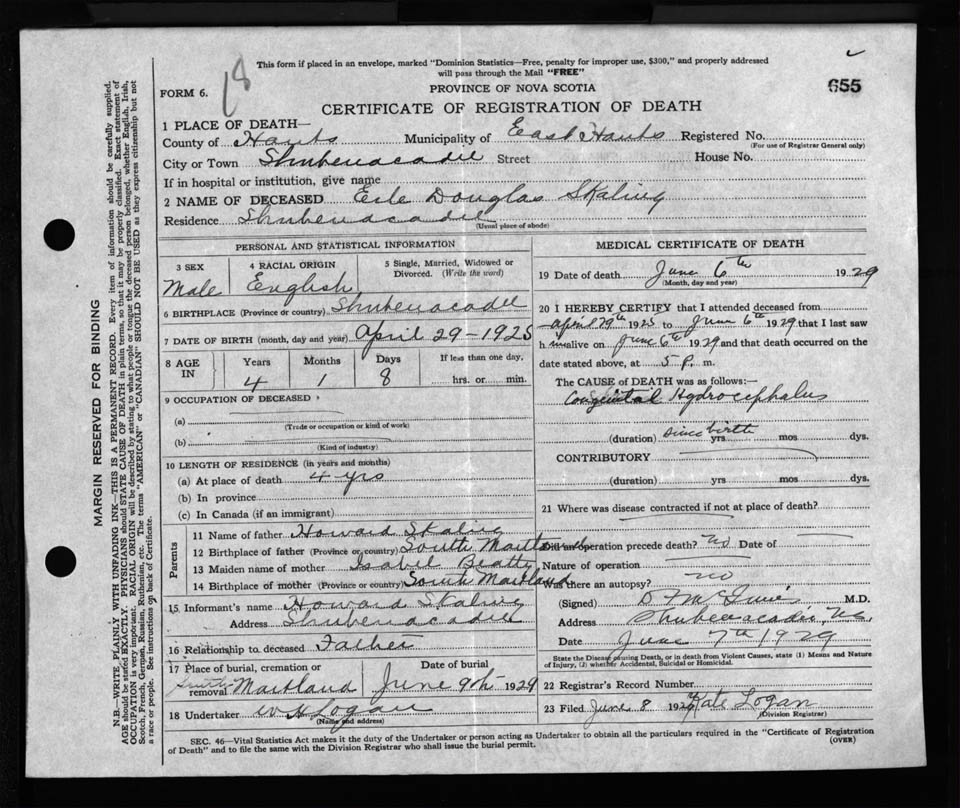 This form if placed in an envelope, marked "Dominion Statistics—Free, penalty for improper use, $300," and properly addressed
will pass through the Mail "FREE"
655
FORM 6.
PROVINCE OF NOVA SCOTIA
CERTIFICATE OF REGISTRATION OF DEATH
1 PLACE OF DEATH—
County of Hants Municipality of East Hants Registered No.
(For use of Registrar General only)
City or Town Shubenacadie Street House No.
If in hospital or institution, give name
2 NAME OF DECEASED Douglas Skaling
Residence Shubenacadie
(Usual place of abode)
PERSONAL AND STATISTICAL INFORMATION
3 SEX 4 RACIAL ORIGIN 5 Single, Married, Widowed or
Divorced. (Write the word)
Male English
6 BIRTHPLACE (Province or country) Shubenacadie
7 DATE OF BIRTH (month, day and year) April 29-1925
8 AGE IN Years Months Days If less than one day,
4 1 8 hrs. or min.
9 OCCUPATION OF DECEASED
(a)
(Trade or occupation or kind of work)
(b)
(Kind of industry)
10 LENGTH OF RESIDENCE (in years and months)
(a) At place of death 4 yrs
(b) In province
(c) In Canada (if an immigrant)
Parents
11 Name of father Howard Skaling
12 Birthplace of father (Province or country) South Maitland
13 Maiden name of mother Isabel Beatty
14 Birthplace of mother (Province or country) South Maitland
15 Informant's name Howard Skaling
Address Shubenacadie
16 Relationship to deceased Father
17 Place of burial, cremation or Date of burial
removal South Maitland June 9th 1929
18 Undertaker W H Logan
(Name and address)
MEDICAL CERTIFICATE OF DEATH
19 Date of death June 6th 1929
(Month, day and year)
20 I HEREBY CERTIFY that I attended deceased from
April 29th 1925 to June 6th 1929 that I last saw
him alive on June 6th 1929 and that death occurred on the
date stated above, at 5 P. m.
The CAUSE OF DEATH was as follows:—
Congenital Hydrocephalus
(duration) since birth yrs mos dys.
CONTRIBUTORY
(duration) yrs mos dys.
21 Where was disease contracted if not at place of death?
Did an operation precede death? no Date of
Nature of operation
Was there an autopsy? no
(Signed) M.D.
Address Shubenacadie, N.S.
Date June 7th 1929
State the Disease causing Death, or in death from Violent Causes, state (1) Means and Nature
of Injury, (2) whether Accidental, Suicidal or Homicidal.
22 Registrar's Record Number
23 Filed June 8 1929 Kate Logan
(Division Registrar)
SEC. 46—Vital Statistics Act makes it the duty of the Undertaker or person acting as Undertaker to obtain all the particulars required in the "Certificate of Registration
of Death" and to file the same with the Division Registrar who shall issue the burial permit.
(OVER)
MARGIN RESERVED FOR BINDING
N.B.—WRITE PLAINLY WITH UNFADING INK—THIS IS A PERMANENT RECORD. Every item of information should be carefully supplied.
AGE should be stated EXACTLY. PHYSICIANS should STATE CAUSE OF DEATH in plain terms, so that it may be properly classified. Exact statement of
OCCUPATION is very important. RACIAL ORIGIN will be described by stating to what people or tongue the deceased person belonged, whether English, Irish,
Scotch, French, German, Russian, Ruthenian, etc. The terms "AMERICAN" or "CANADIAN" SHOULD NOT BE USED as they express citizenship but not
a race or people. See instructions on back of Certificate.